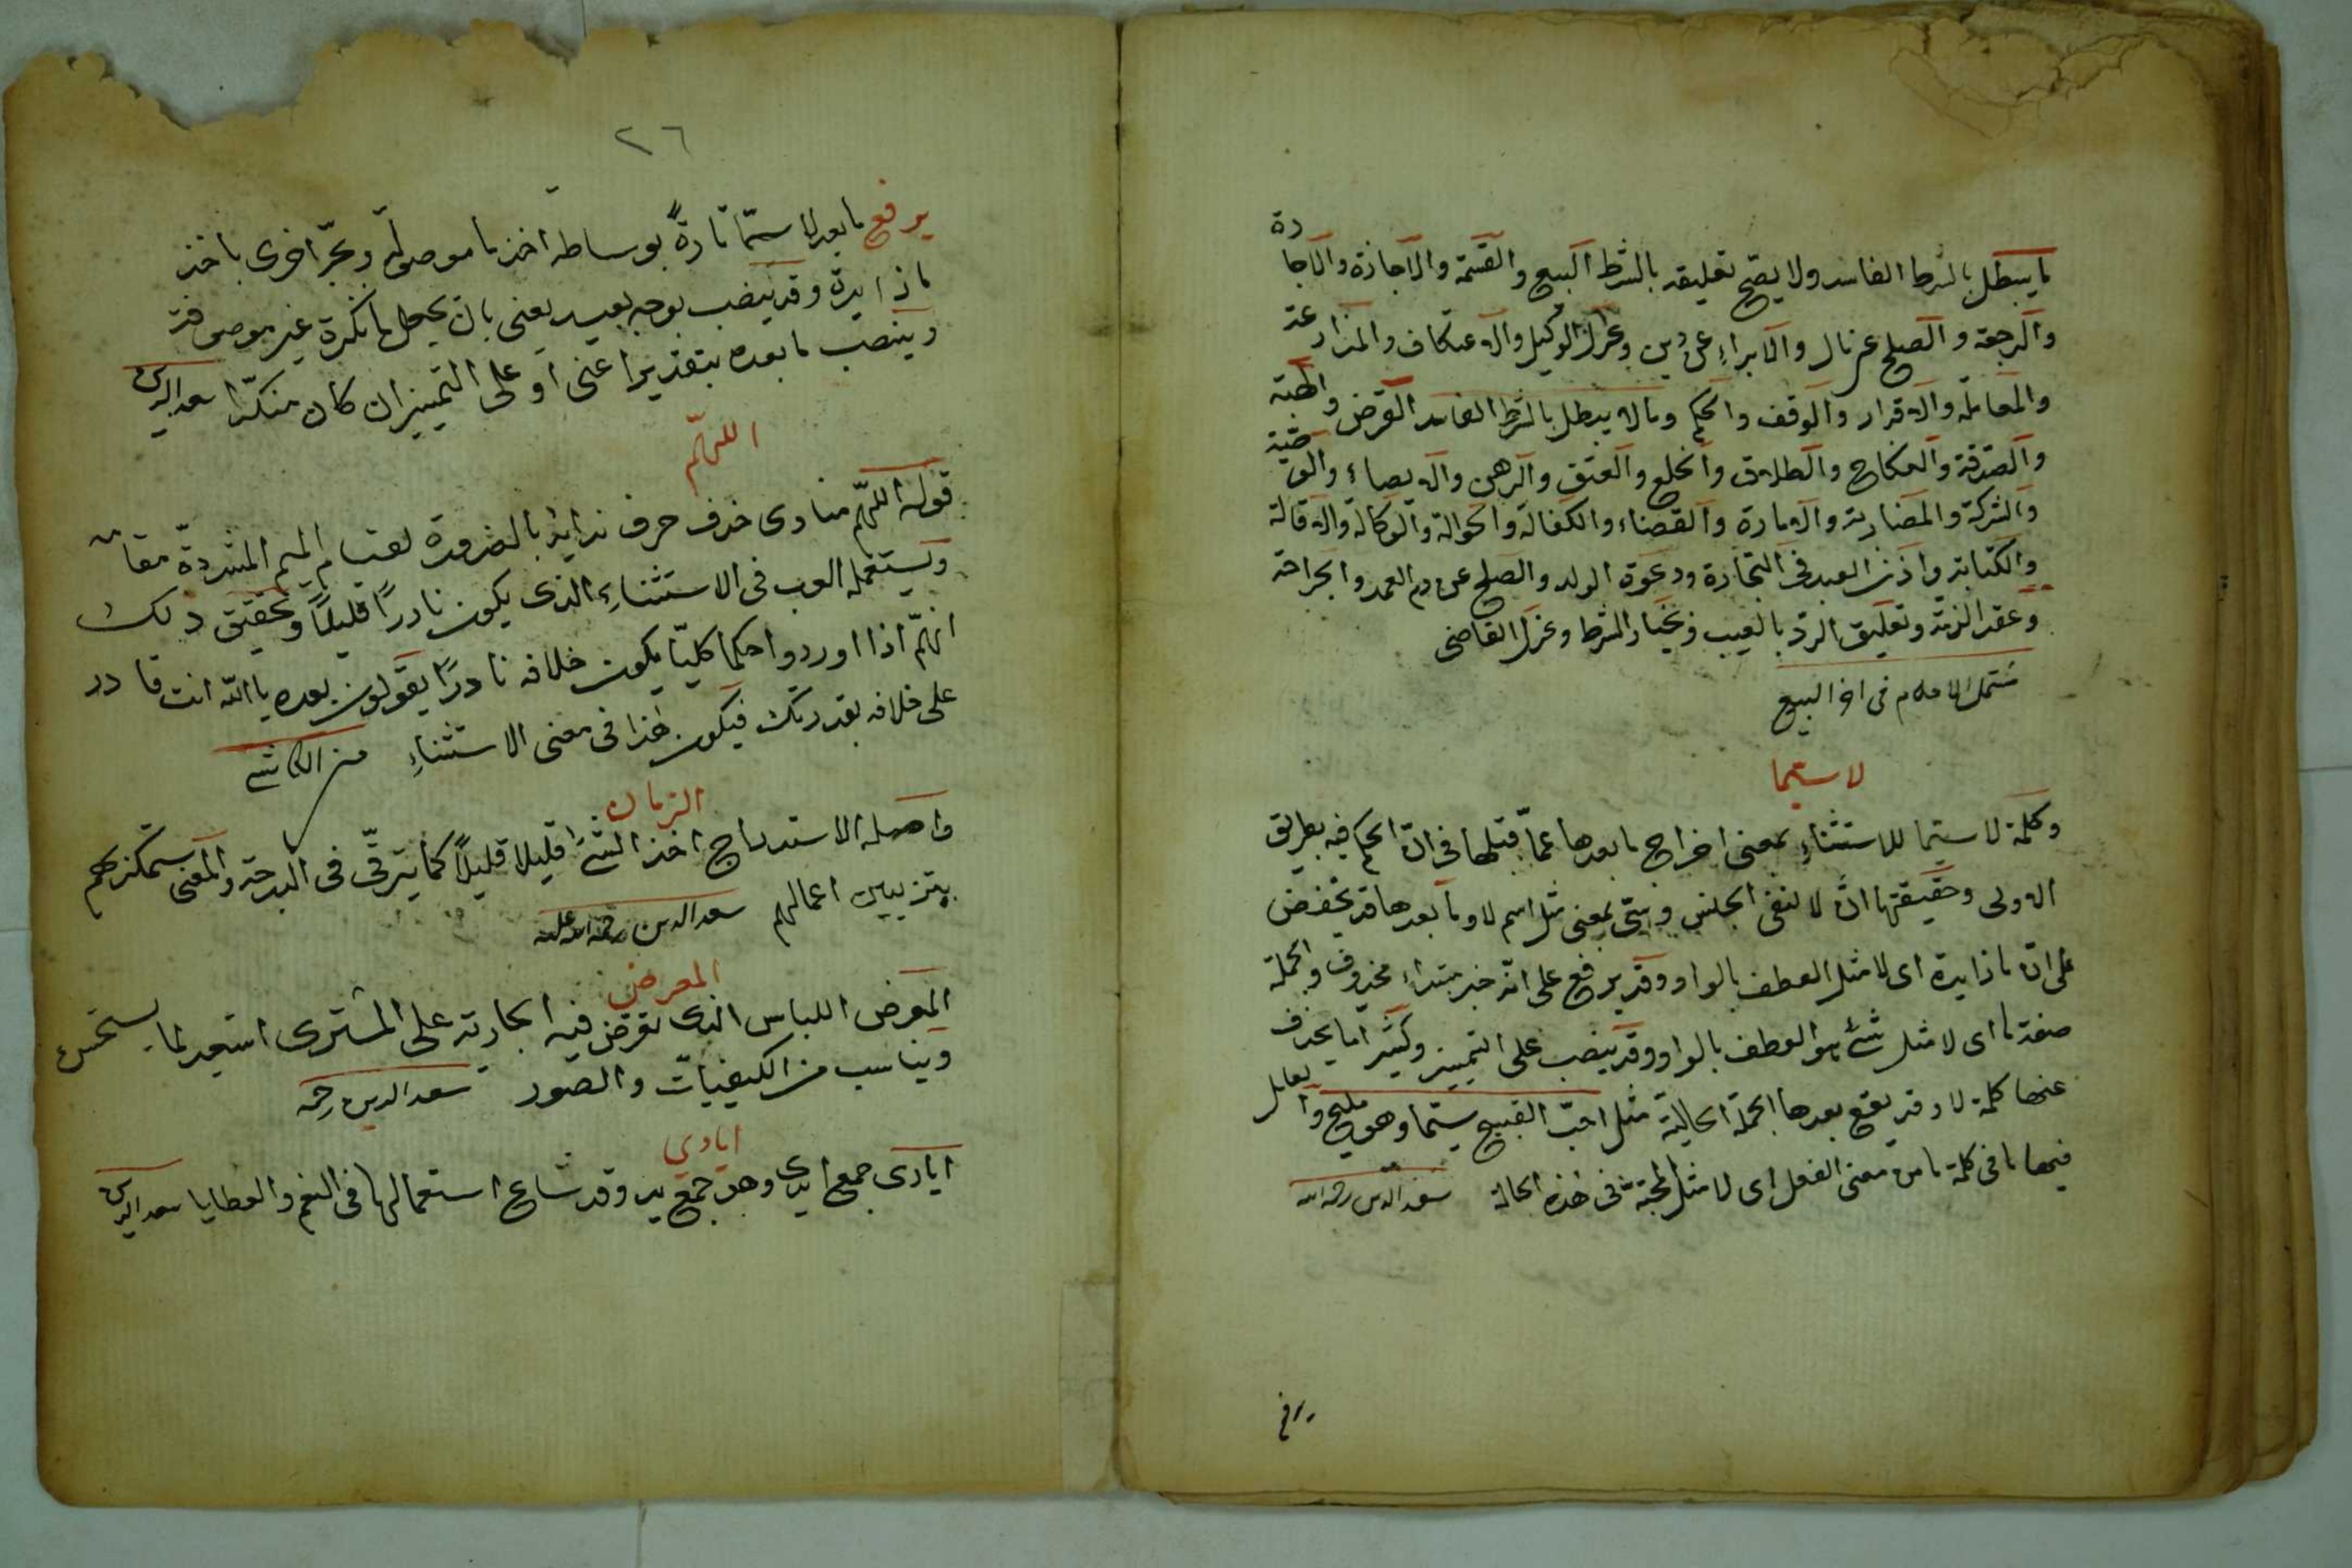 ما يبطل بالشرط الفاسد ولا يصح تعليقه بالشرط البيع والقسمة والاجازة والاجارة
والرجعة والصلح عن مال والابراء عن دين وعزل الوكيل والاعتكاف والمزارعة
والمعاملة والاقرار والوقف والحكم وما لا يبطل بالشرط الفاسد القرض والهبة
والصدقة والنكاح والطلاق والخلع والعتق والرهن والايصاء والوصية
والشركة والمضاربة والامارة والقضاء والكفالة والحوالة والوكالة والاقالة
والكتابة واذن العبد في التجارة ودعوة الولد والصلح عن دم العمد والجراحة
وعقد الذمة وتعليق الرد بالعيب وبخيار الشرط وعزل القاضي
في اخر البيع
لا سيما
وكلمة لا سيما للاستثناء بمعنى اخراج ما بعدها عمّا قبلها في ان الحكم فيه بطريق
الاولى وحقيقتها انّ لا لنفي الجنس وسيّ بمعنى مثل اسم لا وما بعدها قد يخفض
على ان ما زايدة اى لا مثل العطف بالواو وقد يرفع على انّه خبر مبتداء محذوف والجملة
صفة ما اى لا مثل شئ هو العطف بالواو وقد ينصب على التمييز وكثيرا ما يحذف
عنها كلمة لا وقد يقع بعدها الجملة الحالية مثل احبّ القبيح سيّما وهو مليح والعامل
فيها ما في كلمة ما من معنى الفعل اى لا مثل المحبة في هذه الحالة سعد الدين رحمه الله
يرفع
٢٦
يرفع ما بعد لا سيّما تارةً بوساطه اخذ ما موصولة ويجرّ اخرى باخذ
ما زايدة وقد ينصب بوجه بعيد يعنى بان يجعل ما نكرة غير موصوفة
وينصب ما بعده بتقدير اعنى او على التمييز ان كان منكّرا سعد الدين
اللهمّ
قوله اللهمّ منادى حذف حرف ندايه بالضرورة لقيام الميم المشددة مقامه
ويستعمله العرب في الاستثناء الذى يكون نادرًا قليلًا وتحقيق ذلك
انهمّ اذا اوردوا حكما كليّا يكون خلافه نادرًا يقولون بعده يا الله انت قادر
على خلافه بقدرتك فيكون هذا في معنى الاستثناء من الكاشي
الزمان
واصله الاستدراج اخذ الشئ قليلا قليلاً كما يترقّى في الدرجة والمعنى
بتزيين اعمالهم سعد الدين رحمة الله عليه
المعرض
المعرض اللباس الذى تعرض فيه الجارية على المشترى استعير لما يستحسن
ويناسب من الكيفيات والصور سعد الدين رحمه
ايادي
ايادى جمع ايدى وهو جمع يد وقد شاع استعمالها في النعم والعطايا سعد الدين